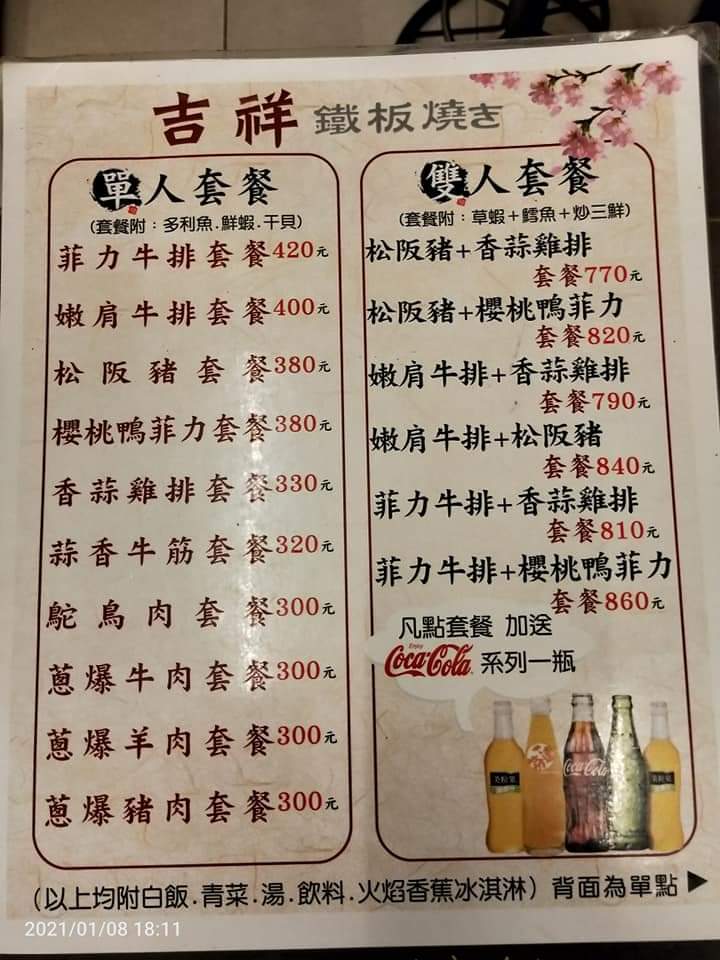 吉祥 鐵板燒き
單人套餐
(套餐附：多利魚.鮮蝦.干貝)
菲力牛排套餐420元
嫩肩牛排套餐400元
松阪豬套餐380元
櫻桃鴨菲力套餐380元
香蒜雞排套餐330元
蒜香牛筋套餐320元
鴕鳥肉套餐300元
蔥爆牛肉套餐300元
蔥爆羊肉套餐300元
蔥爆豬肉套餐300元
雙人套餐
(套餐附：草蝦+鱈魚+炒三鮮)
松阪豬+香蒜雞排
套餐770元
松阪豬+櫻桃鴨菲力
套餐820元
嫩肩牛排+香蒜雞排
套餐790元
嫩肩牛排+松阪豬
套餐840元
菲力牛排+香蒜雞排
套餐810元
菲力牛排+櫻桃鴨菲力
套餐860元
凡點套餐 加送
Enjoy
Coca-Cola 系列一瓶
Coca-Cola
(以上均附白飯.青菜.湯.飲料.火焰香蕉冰淇淋) 背面為單點▶
2021/01/08 18:11